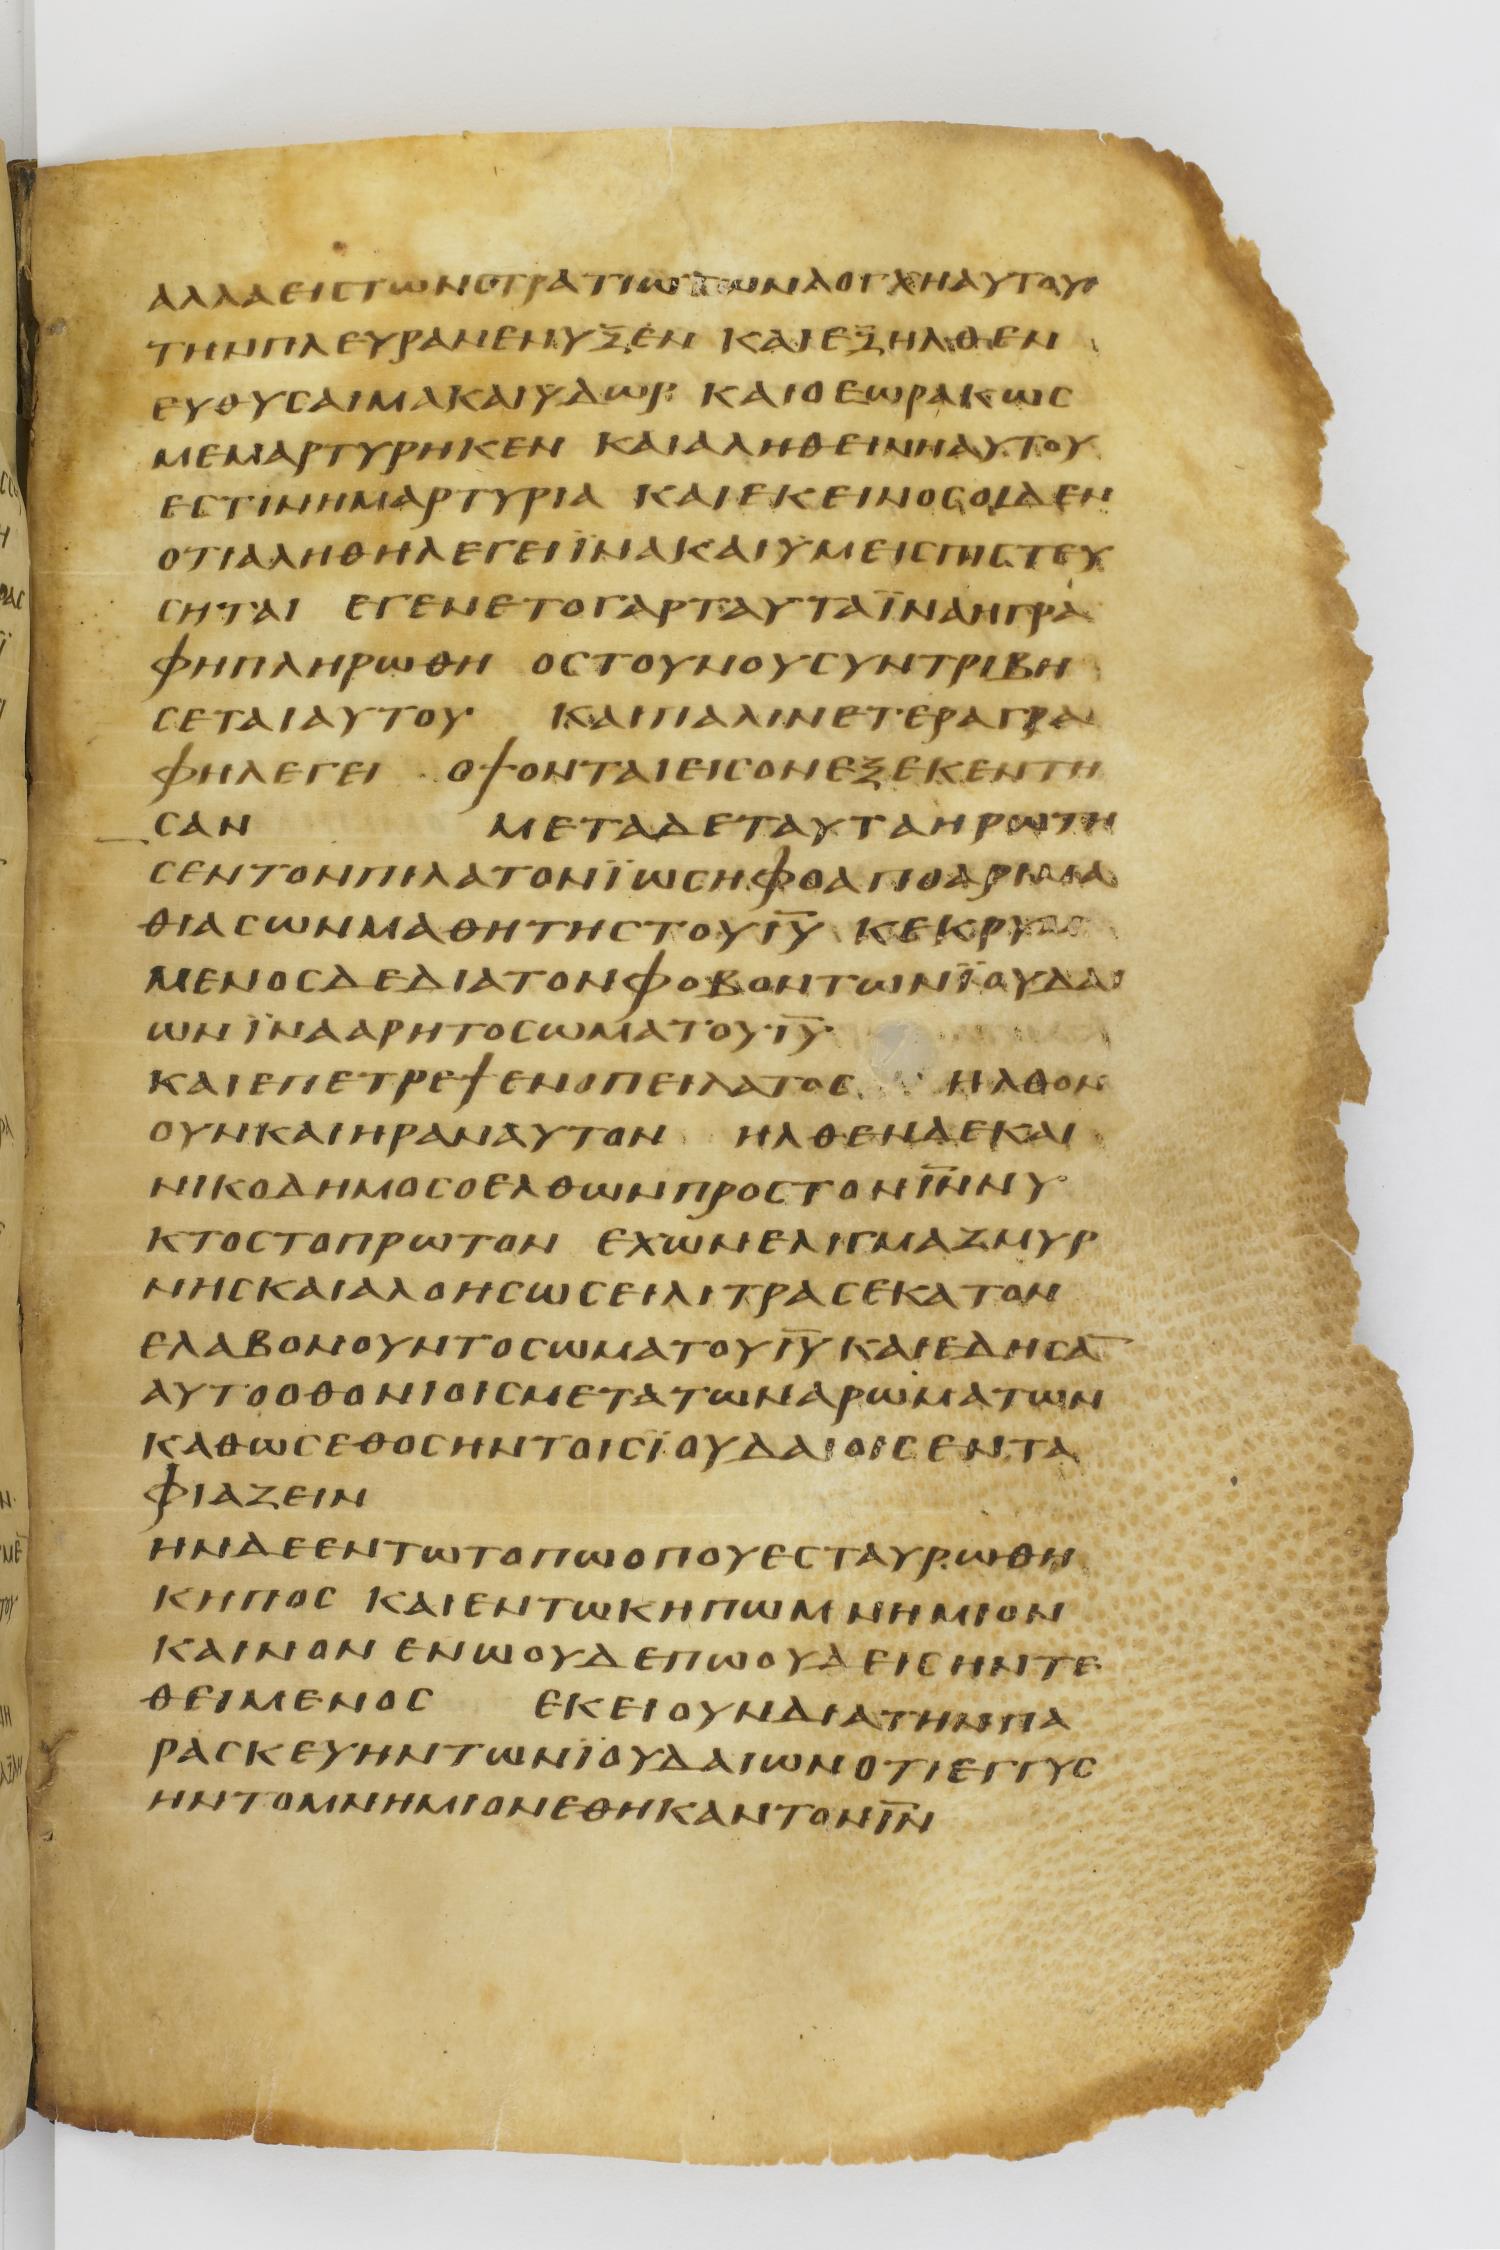 ΑΛΛΑΕΙϹΤΩΝϹΤΡΑΤΙΩΤΩΝΛΟΓΧΗΑΥΤΟΥ
ΤΗΝΠΛΕΥΡΑΝΕΝΥΞΕΝ ΚΑΙΕΞΗΛΘΕΝ
ΕΥΘΥϹΑΙΜΑΚΑΙΥΔΩΡ ΚΑΙΟΕΩΡΑΚΩϹ
ΜΕΜΑΡΤΥΡΗΚΕΝ ΚΑΙΑΛΗΘΕΙΝΗΑΥΤΟΥ
ΕϹΤΙΝΗΜΑΡΤΥΡΙΑ ΚΑΙΕΚΕΙΝΟϹΟΙΔΕΝ
ΟΤΙΑΛΗΘΗΛΕΓΕΙΪΝΑΚΑΙΫΜΕΙϹΠΙϹΤΕΥ
ϹΗΤΑΙ ΕΓΕΝΕΤΟΓΑΡΤΑΥΤΑΪΝΑΗΓΡΑ
ΦΗΠΛΗΡΩΘΗ ΟϹΤΟΥΝΟΥϹΥΝΤΡΙΒΗ
ϹΕΤΑΙΑΥΤΟΥ ΚΑΙΠΑΛΙΝΕΤΕΡΑΓΡΑ
ΦΗΛΕΓΕΙ ΟΨΟΝΤΑΙΕΙϹΟΝΕΞΕΚΕΝΤΗ
ϹΑΝ ΜΕΤΑΔΕΤΑΥΤΑΗΡΩΤΗ
ϹΕΝΤΟΝΠΙΛΑΤΟΝΪΩϹΗΦΟΑΠΟΑΡΙΜΑ
ΘΙΑϹΩΝΜΑΘΗΤΗϹΤΟΥΙ̅Υ̅ ΚΕΚΡΥΜ
ΜΕΝΟϹΔΕΔΙΑΤΟΝΦΟΒΟΝΤΩΝΪΟΥΔΑΙ
ΩΝΪΝΑΑΡΗΤΟϹΩΜΑΤΟΥΙ̅Υ̅
ΚΑΙΕΠΕΤΡΕΨΕΝΟΠΕΙΛΑΤΟϹ ΗΛΘΟΝ
ΟΥΝΚΑΙΗΡΑΝΑΥΤΟΝ ΗΛΘΕΝΔΕΚΑΙ
ΝΙΚΟΔΗΜΟϹΟΕΛΘΩΝΠΡΟϹΤΟΝΙ̅Ν̅ΝΥ
ΚΤΟϹΤΟΠΡΩΤΟΝ ΕΧΩΝΕΛΙΓΜΑΖΜΥΡ
ΝΗϹΚΑΙΑΛΟΗϹΩϹΕΙΛΙΤΡΑϹΕΚΑΤΟΝ
ΕΛΑΒΟΝΟΥΝΤΟϹΩΜΑΤΟΥΙ̅Υ̅ΚΑΙΕΔΗϹΑ̅
ΑΥΤΟΟΘΟΝΙΟΙϹΜΕΤΑΤΩΝΑΡΩΜΑΤΩΝ
ΚΑΘΩϹΕΘΟϹΗΝΤΟΙϹΪΟΥΔΑΙΟΙϹΕΝΤΑ
ΦΙΑΖΕΙΝ
ΗΝΔΕΕΝΤΩΤΟΠΩΟΠΟΥΕϹΤΑΥΡΩΘΗ
ΚΗΠΟϹ ΚΑΙΕΝΤΩΚΗΠΩΜΝΗΜΙΟΝ
ΚΑΙΝΟΝ ΕΝΩΟΥΔΕΠΩΟΥΔΕΙϹΗΝΤΕ
ΘΕΙΜΕΝΟϹ ΕΚΕΙΟΥΝΔΙΑΤΗΝΠΑ
ΡΑϹΚΕΥΗΝΤΩΝΪΟΥΔΑΙΩΝΟΤΙΕΓΓΥϹ
ΗΝΤΟΜΝΗΜΙΟΝΕΘΗΚΑΝΤΟΝΙ̅Ν̅